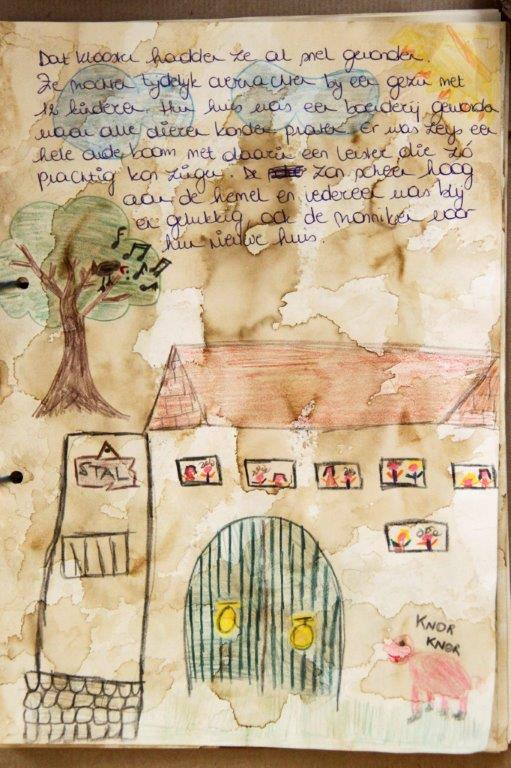 Dat klooster hadden ze al snel gevonden.
Ze mochten tijdelijk overnachten bij een gezin met
12 kinderen. Hun huis was een boerderij geworden
waar alle dieren konden praten, er was zelfs een
hele oude boom met daarin een lijster die zó
prachtig kon zingen. De zon scheen hoog
aan de hemel en iedereen was blij
en gelukkig ook de monniken voor
hun nieuwe huis.
STAL
KNOR
KNOR